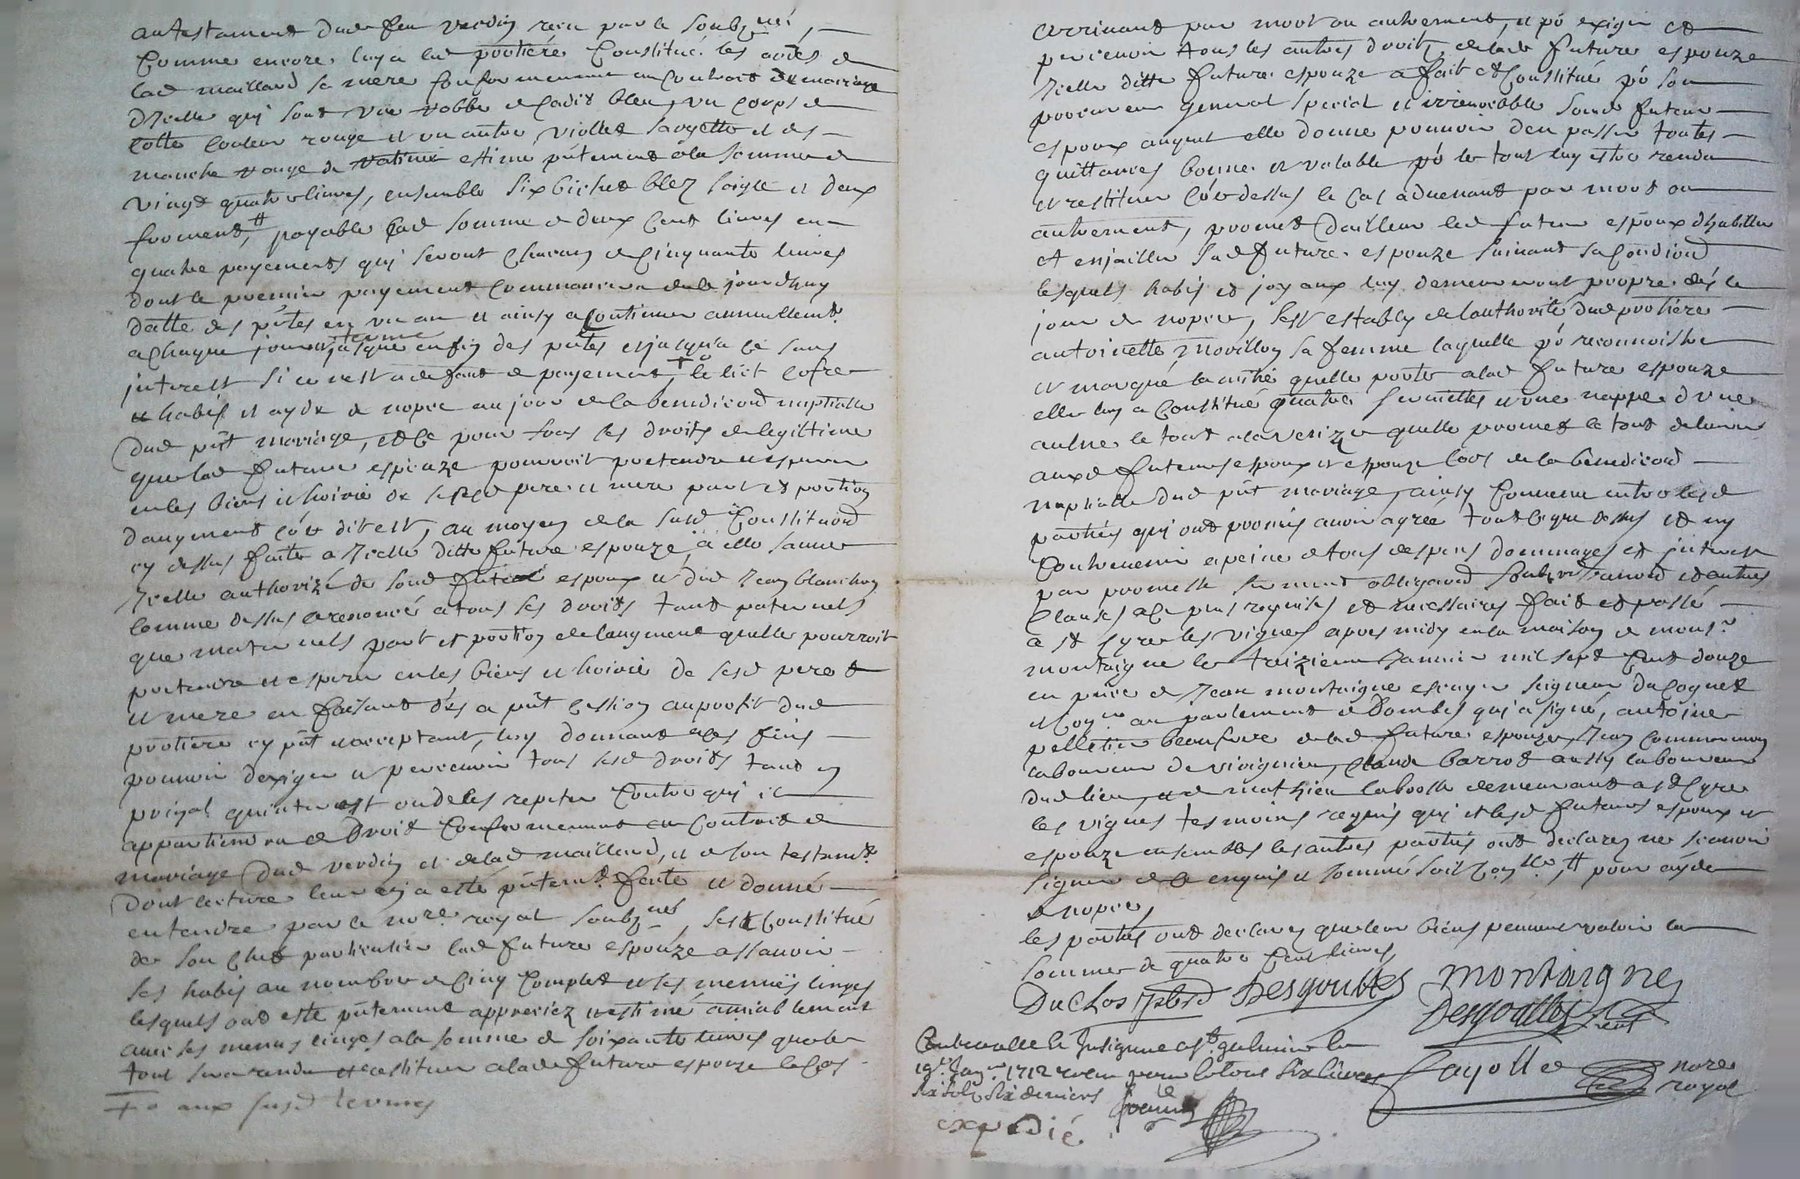 au testament dud feu verdin receu par le soubzné,
Comme encore luy a lad portiere Constitué les
lad maillard sa mere conformement au Contrait de mariage
d'Icelle qui sont une robbe de cadis bleu, un corps de
cotte couleur rouge et un autre viollet sargette et des
manche rouge de estimé pntement a la somme de
vingt quatre livres, ensemble six bichet bled soigle et deux
froment, payable lad somme de deux cent livres en
quatre payements qui seront chacun de cinquante livres
dont le premier payement Commancera de ce jourdhuy
datte des pntes en un an et ainsy a Continuer annuellemt
a chaque jour et terme jusque en fin des pntes et jusqua ce sans
interest si ce nest a deffaut de payement le lict cofre
habis et ayde de nopce au jour de la benediction nuptialle
dud pnt mariage, et ce pour tous les droits de legittime
que lad future espouze pourroit pretendre et esperer
en les biens et hoirie de sesd pere et mere part et portion
daugment c'est dit est, au moyen de la susd Constitution
cy dessus faite a Icelle ditte future espouze a elle
Icelle authorizé de sond futur espoux et dud Jean blanchon
comme dessus a renoncé a tous ses droits tant paternels
que maternels part et portion de laugment quelle pourroit
pretendre et esperer en les biens et hoirie de sesd pere
et mere en faisant des a pnt cession au profit dud
portiere cy pnt et acceptant, luy donnant a ces fins
pouvoir dexiger et percevoir tous sesd droits tant en
prinpal quinterest ou de les repeter Contre qui il
appartiendra de Droit Conformement au Contrait de
mariage dud verdin et de lad maillard, et de son testamt
dont lecture leur en a esté pntemt faite et donné
entendre par le nore royal soubzné, sest Constitué
de son chef particulier lad future espouze assavoir
ses habis au nombre de cinq Complet et ses menues linges
lesquels ont esté pntement appreciez et estimé amiablement
avec ses menus linges a la somme de soixante livres que le
tout sera rendu et restituer a lad future espouze le cas
aux susd termes
arrivant par mort ou autrement, et pr exiger et
percevoir tous les autres droits de lad future espouze
Icelle ditte future espouze a fait et Constitué pr son
procureur general special et irrevocable sond futur
espoux auquel elle donne pouvoir den passer toutes
quittances bonne et valable pr le tout luy estre rendu
et restituer c'est dessus le cas advenant par mort ou
autrement, promet d'ailleur led futur espoux dhabiller
et enjailler sad future espouze suivant sa Condiond
lesquels habis et joyaux luy demeureront propre dés le
jour de nopce, sest estably de lauthorité dud portiere
antoinette morillon sa femme laquelle pr reconnoistre
et marqué lamitié quelle porte a lad future espouze
elle luy a Constitué quatre serviettes et une nappe d'une
aulne le tout a la venize quelle promet le tout delivrer
auxd futurs espoux et espouze lors de la benediond
nuptialle dud pnt mariage, ainsy Convenu entre lesd
parties qui ont promis avoir agreé tout le que dessus et ny
Contrevenir a peine de tous despens dommages et interest
par promesse serment obligaond soubz et autres
Clauses a ce plus requises et necessaires fait et passé
a st Cyre les vignes apres midy en la maison de monsr
montaigne le treizieme Janvier mil sept cent douze
en pnce de Jean montaigne escuyer seigneur du Coquet
et Coner au parlement de Dombes qui a signé, antoine
pelletier beaufrere de lad future espouze, Jean
laboureur de virigneux, Claude Barrot aussy laboureur
dud lieu, et de mathieu laboost demeurant a st Cyre
les vignes tesmoins requis qui et lesd futurs espoux et
espouze ensembles les autres parties ont declarez ne scavoir
signer de ce enquis et sommé soit pour ayde
de nopce,
les parties ont declarez que leur biens peuvent valoir la
somme de quatre cent livres
DuClos Desgouttes montaigne
Desgouttes
Controollé le
19e Janv. 1712 receu pour le tout six livres
six sols six deniers
Fayolle nore
royal
expedié